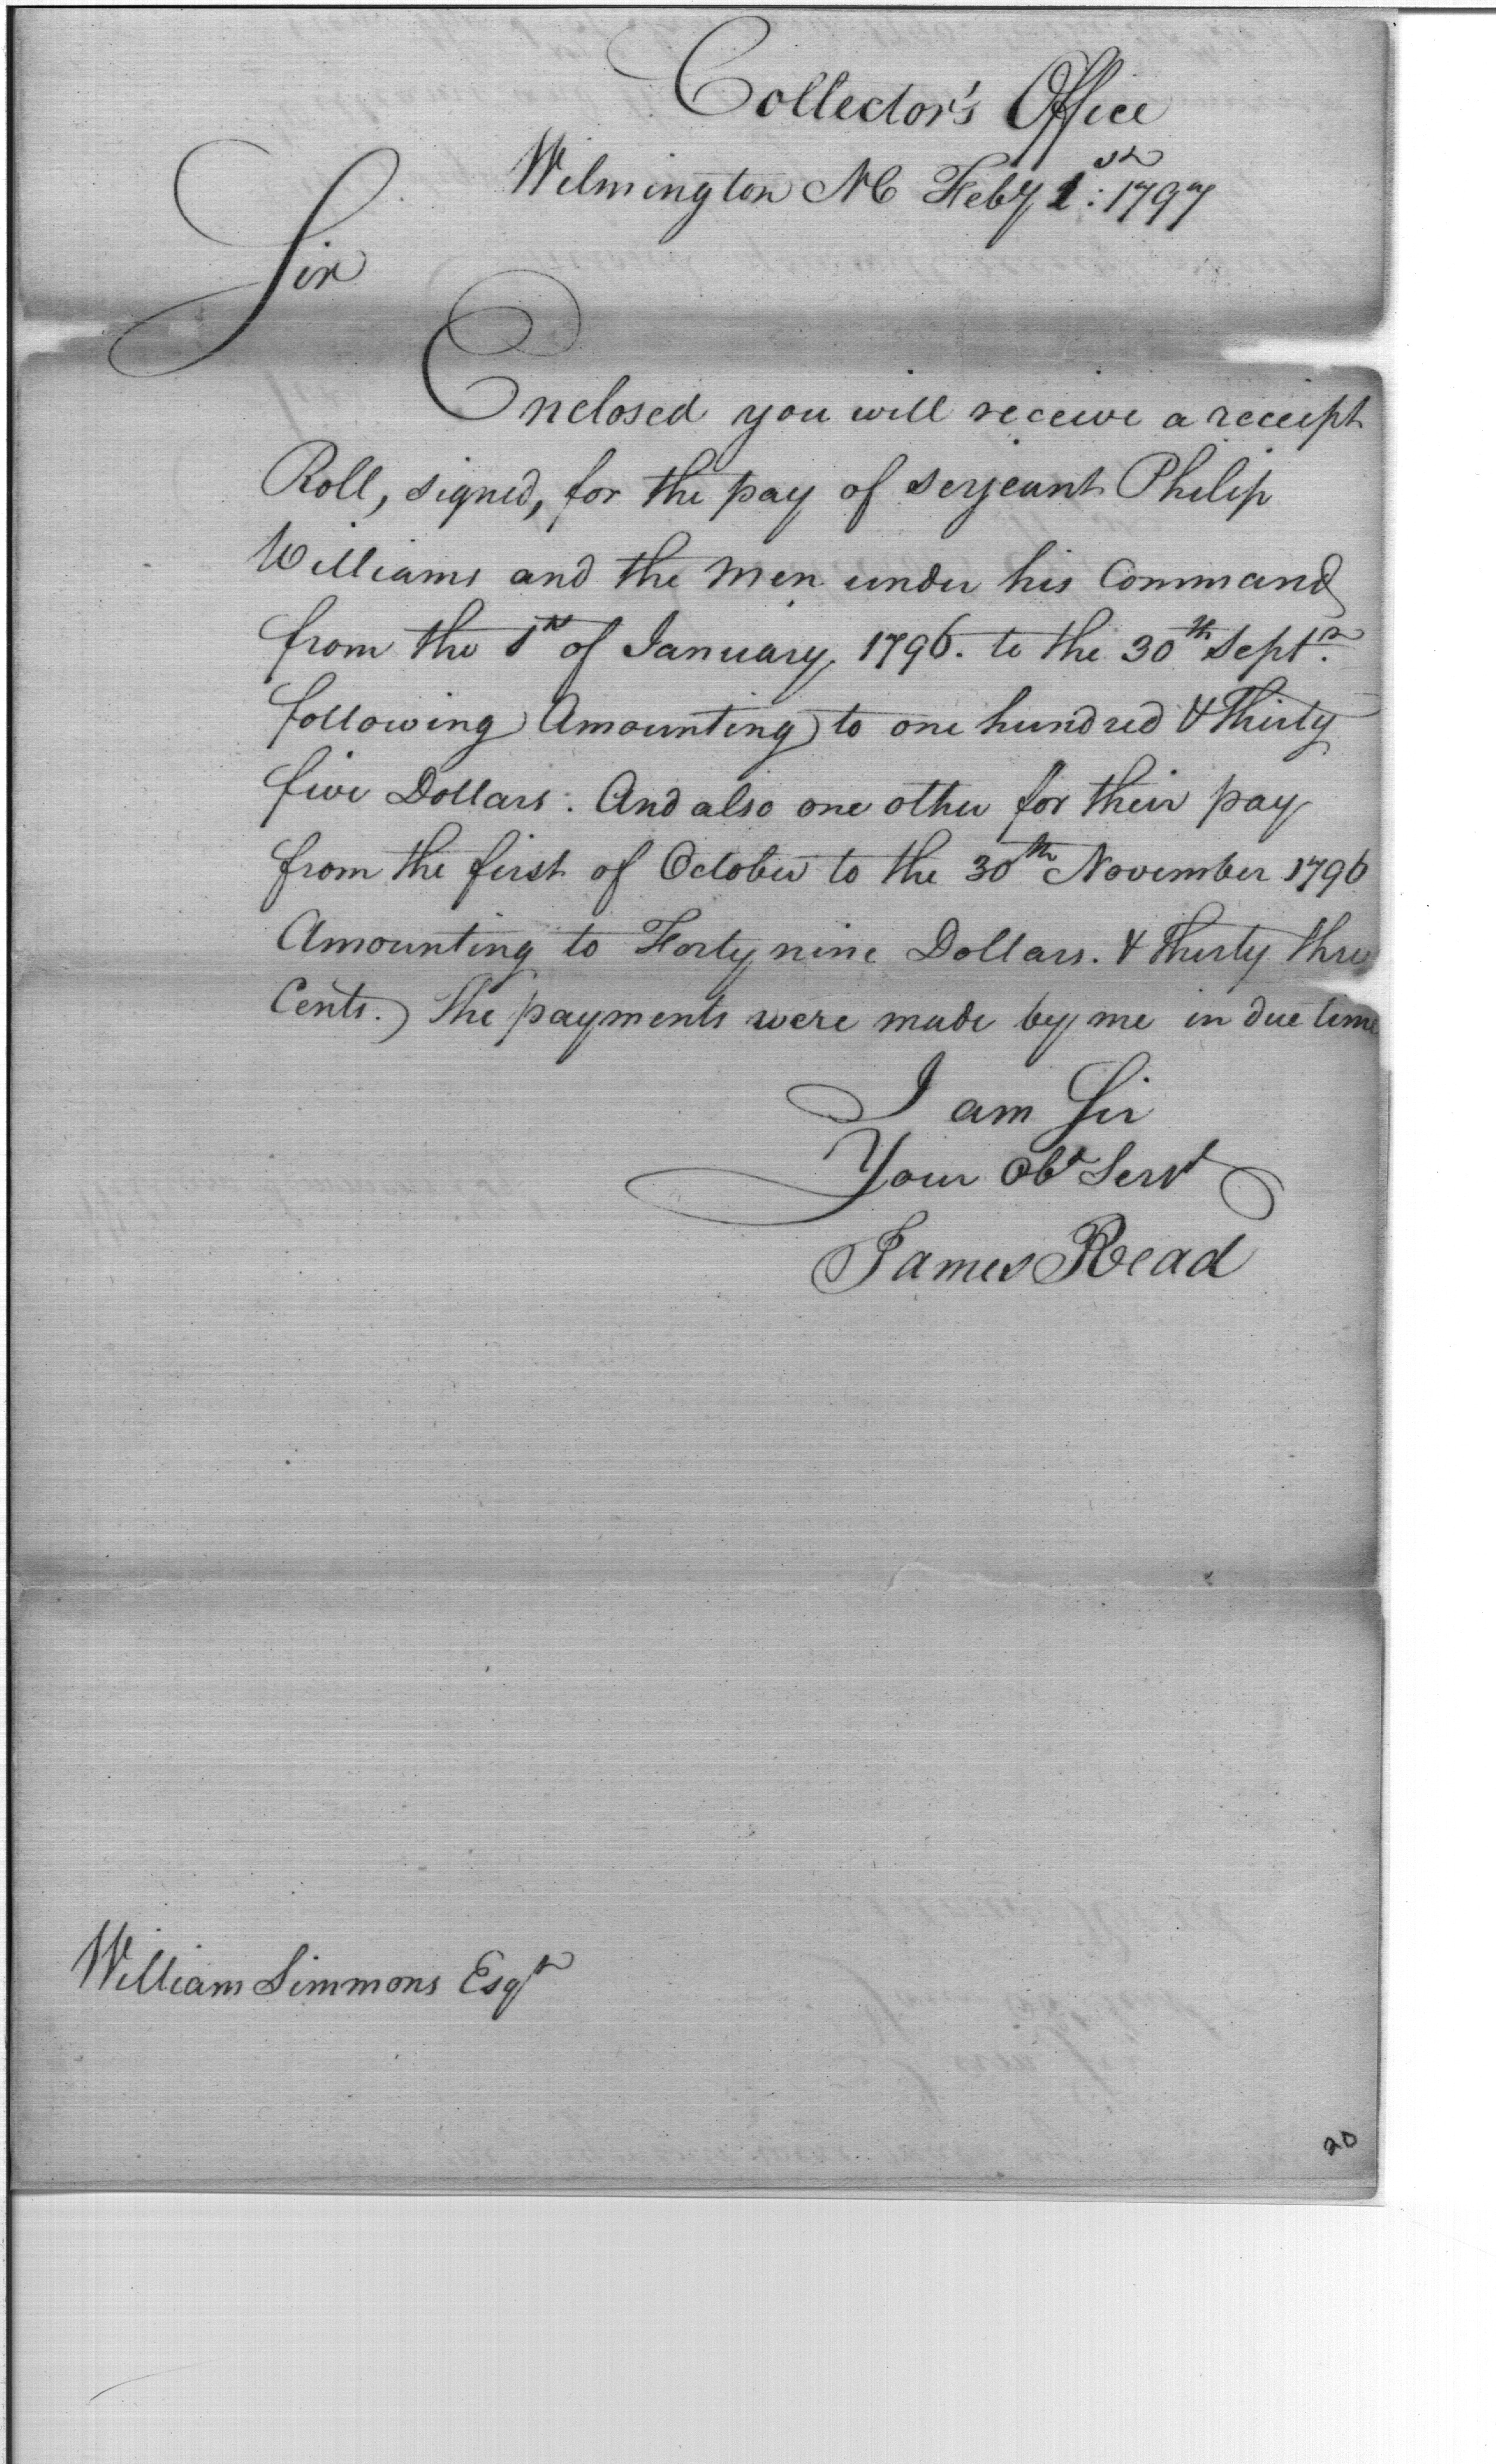 Collector's Office
Wilmington NC Feby 1st: 1797
Sir
Enclosed you will receive a receipt
Roll, signed, for the pay of serjeant Philip
Williams and the Men under his Command
from the 1st of January, 1796. to the 30th Septr.
following Amounting to one hundred & Thirty
five Dollars. And also one other for their pay
from the first of October to the 30th November 1796
Amounting to Forty nine Dollars. & Thirty three
Cents. The payments were made by me in due time
I am Sir
Your Obt Servt
James Read
William Simmons Esqr
20